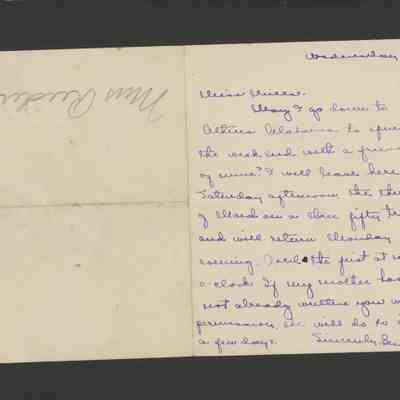 Wednesday
Miss Reeder
Miss Mills -
May I go home to
Athens Alabama to spend
the week end with a friend
of mine? I will leave here
Saturday afternoon the
of March on a three fifty
and will return Monday
evening, the first at
o-clock If my mother has
not already written you
permission, she will do so in
a few days. Sincerely,